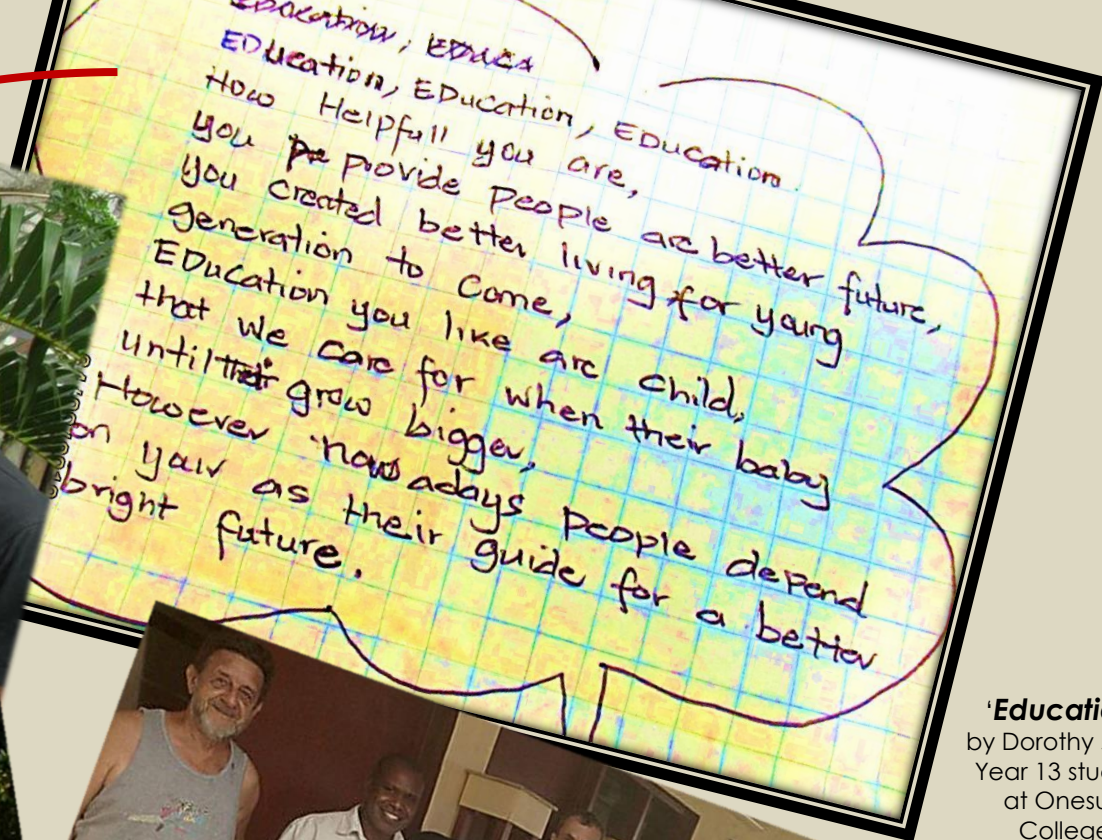 Education, Educa
EDucation, EDucation, EDucation.
How Helpfull you are,
you provide People are better future,
you created better living for young
generation to Come,
EDucation you like are child,
that we care for when their baby
until grow bigger,
However nowadays people depend
on your as their guide for a better
bright future.
'Educati
by Dorothy
Year 13 stu
at Onesu
College